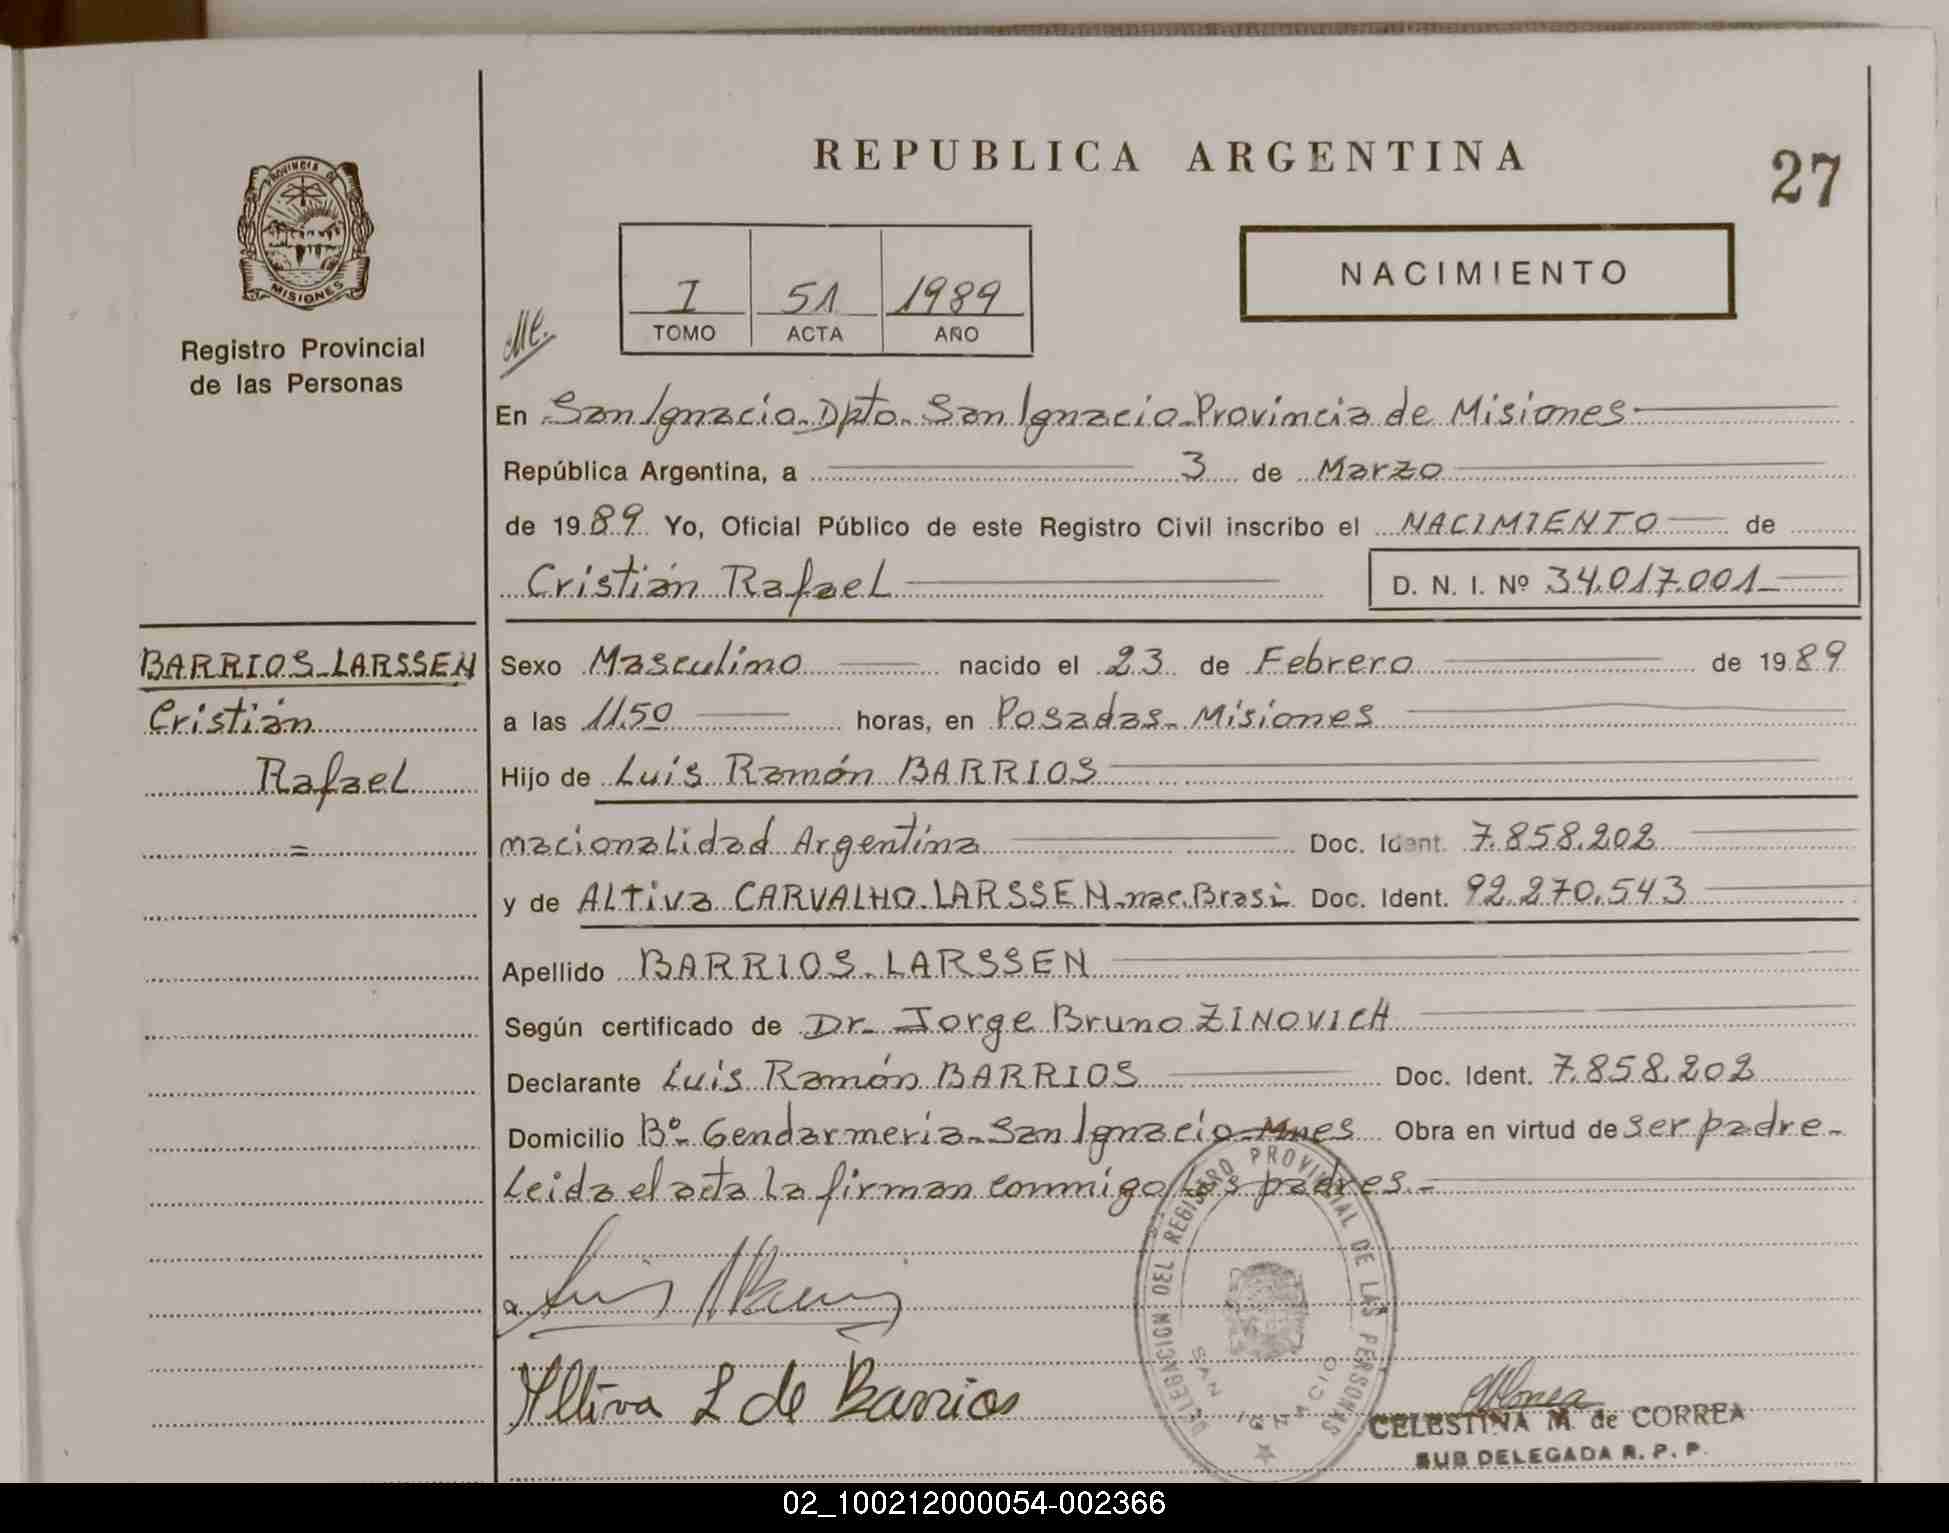 REPUBLICA ARGENTINA
27
PROVINCIA DE
MISIONES
Registro Provincial
de las Personas
I 51 1989
TOMO ACTA AÑO
NACIMIENTO
En San Ignacio - Dpto. San Ignacio - Provincia de Misiones
República Argentina, a 3 de Marzo
de 1989 Yo, Oficial Público de este Registro Civil inscribo el NACIMIENTO de
Cristián Rafael D. N. I. Nº 34.017.001
BARRIOS-LARSSEN
Cristián
Rafael
=
Sexo Masculino nacido el 23 de Febrero de 1989
a las 11.50 horas, en Posadas - Misiones
Hijo de Luis Ramón BARRIOS
nacionalidad Argentina Doc. Ident. 7.858.202
y de ALtiva CARVALHO-LARSSEN-nac. Brasi. Doc. Ident. 92.270.543
Apellido BARRIOS-LARSSEN
Según certificado de Dr. Jorge Bruno ZINOVICH
Declarante Luis Ramón BARRIOS Doc. Ident. 7.858.202
Domicilio Bº- Gendarmeria - San Ignacio - Mnes Obra en virtud de ser padre-
Leida el acta la firman conmigo los padres.-
Altiva L de Barrios
DELEGACION DEL REGISTRO PROVINCIAL DE LAS PERSONAS
SAN IGNACIO
CELESTINA M. de CORREA
SUB DELEGADA R. P. P.
02_100212000054-002366